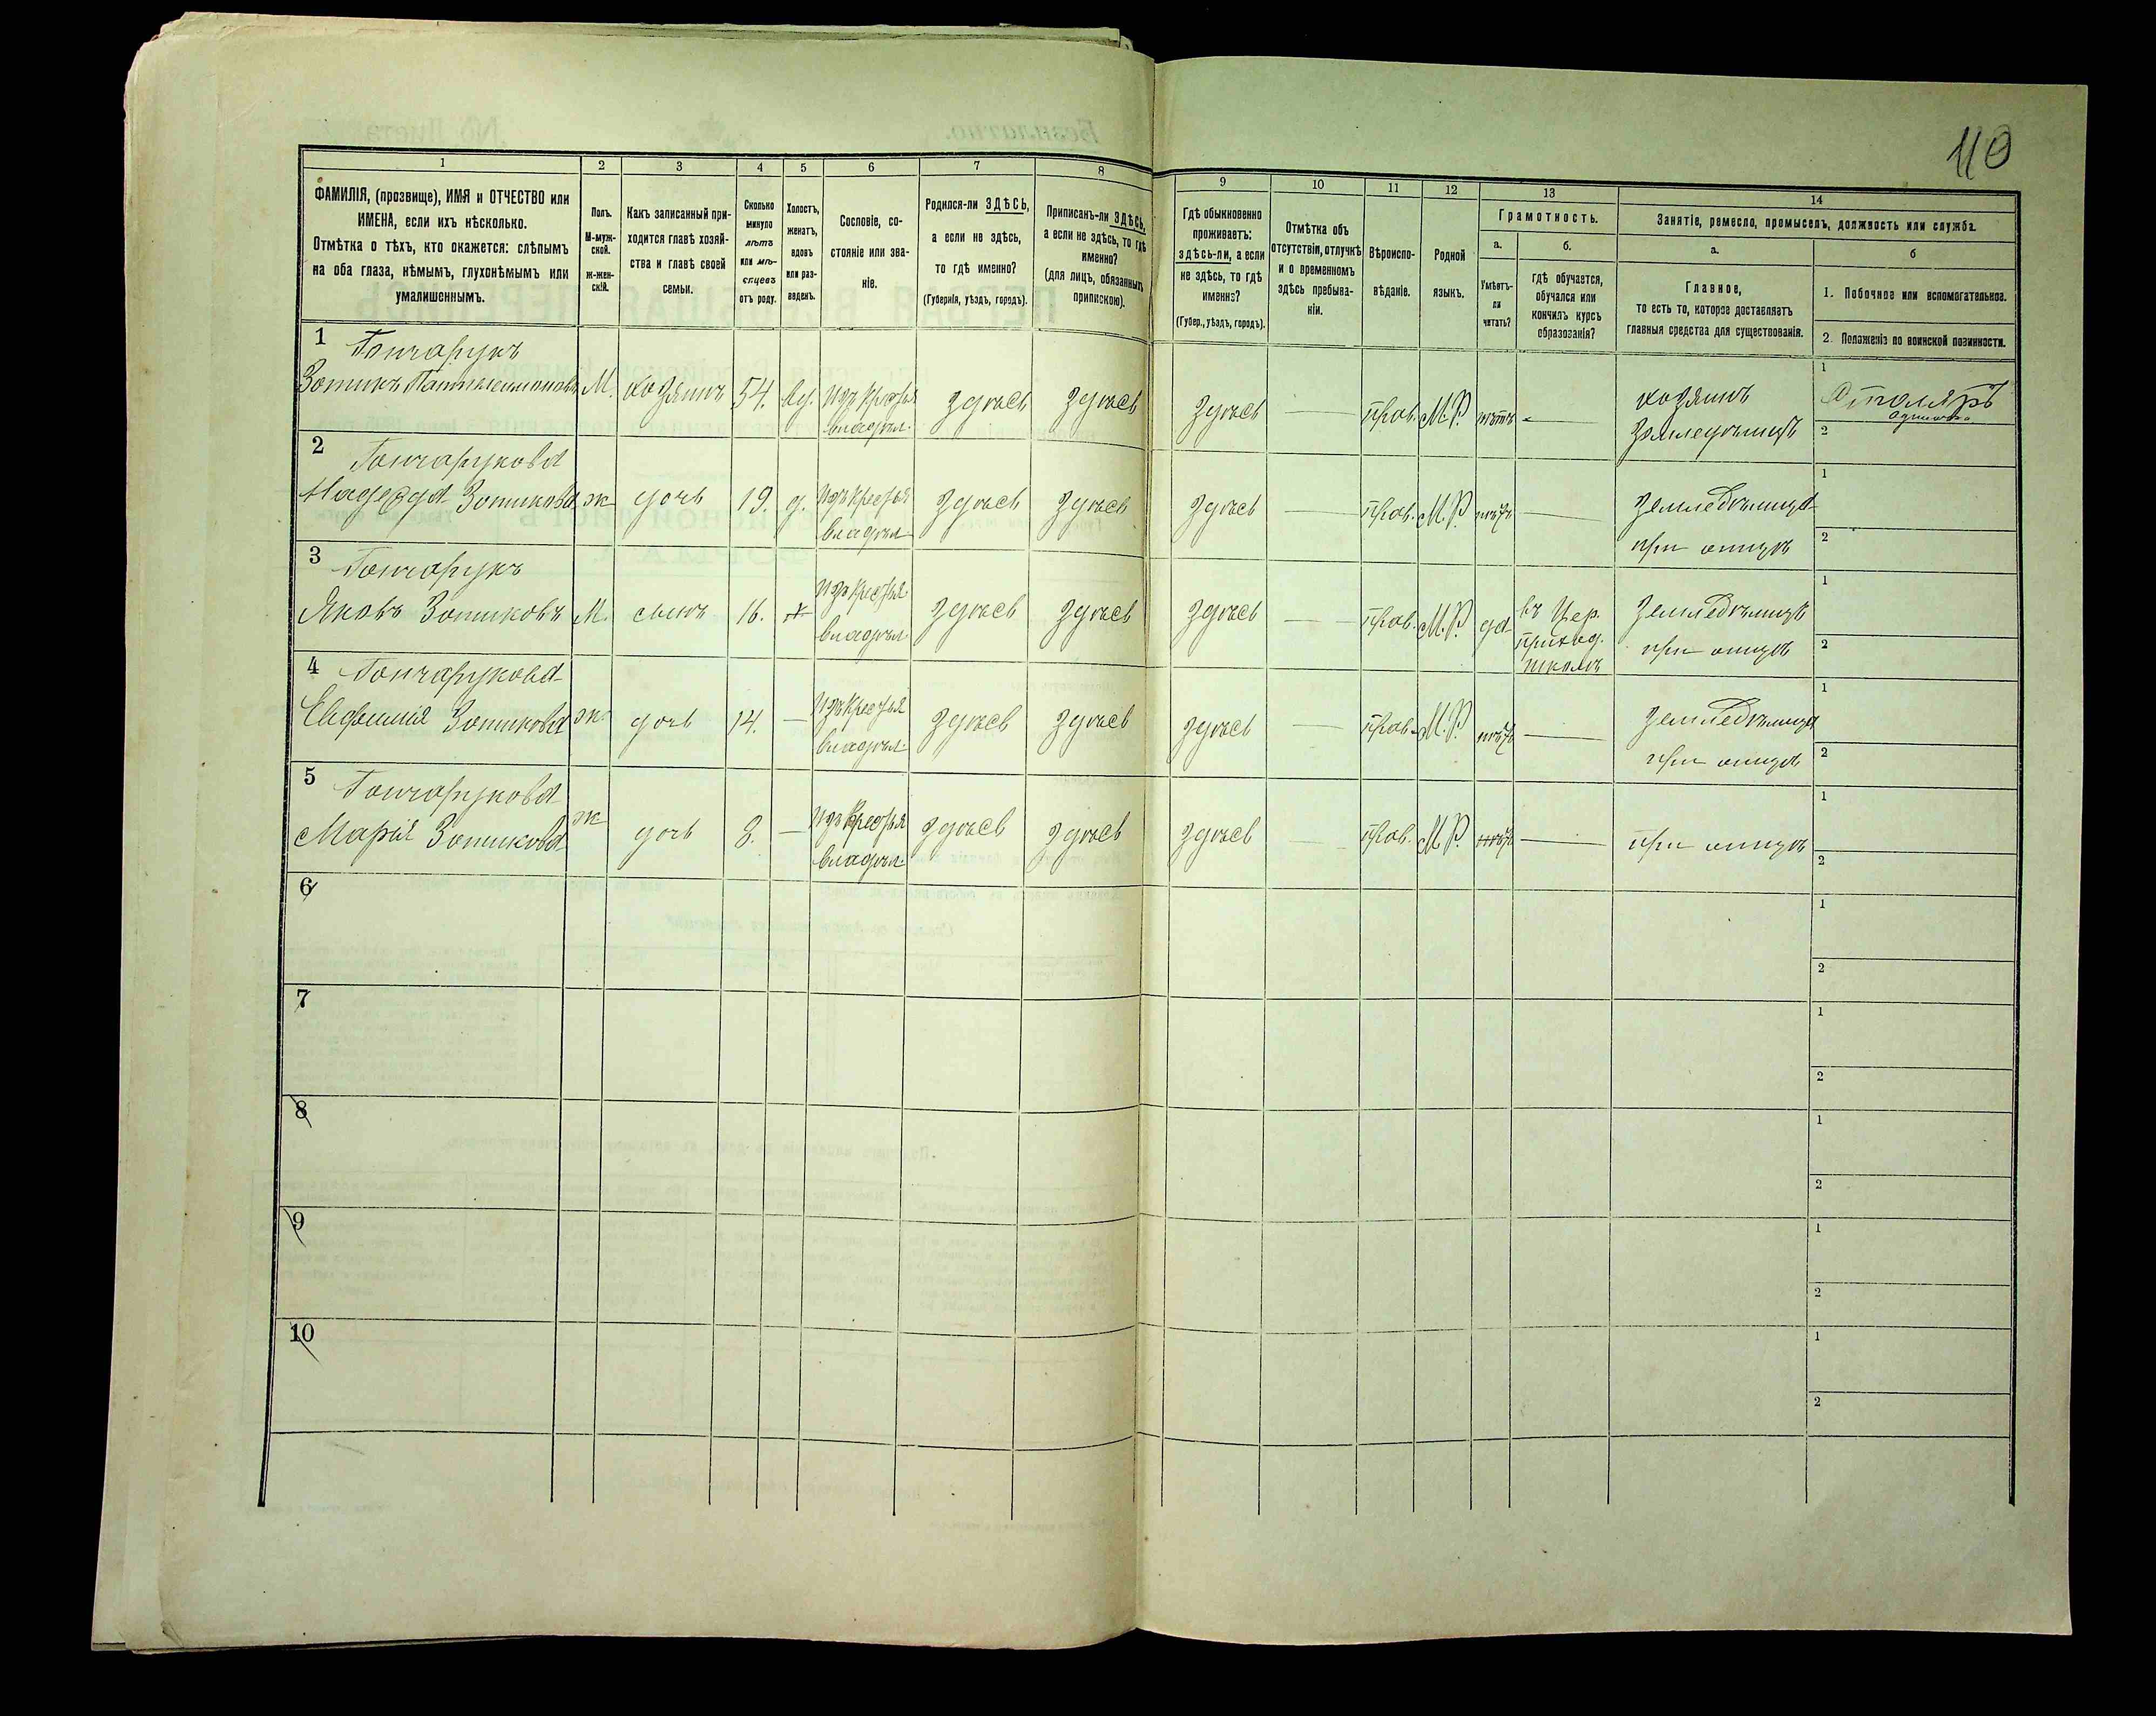 110
1
2
3
4
5
6
7
8
9
10
11
12
13
14
ФАМИЛІЯ, (прозвище), ИМЯ и ОТЧЕСТВО или
ИМЕНА, если ихъ нѣсколько.
Отмѣтка о тѣхъ, кто окажется: слѣпымъ
на оба глаза, нѣмымъ, глухонѣмымъ или
умалишеннымъ.
Полъ.
М-муж-
ской.
ж-жен-
скій.
Какъ записанный при-
ходится главѣ хозяй-
ства и главѣ своей
семьи.
Сколько
минуло
лѣтъ
или мѣ-
сяцевъ
отъ роду.
Холостъ,
женатъ,
вдовъ
или раз-
веденъ.
Сословіе, со-
стояніе или зва-
ніе.
Родился-ли ЗДѢСЬ,
а если не здѣсь,
то гдѣ именно?
(Губернія, уѣздъ, городъ).
Приписанъ-ли ЗДѢСЬ,
а если не здѣсь, то гдѣ
именно?
(для лицъ, обязанныхъ
припискою).
Гдѣ обыкновенно
проживаетъ:
здѣсь-ли, а если
не здѣсь, то гдѣ
именно?
(Губер., уѣздъ, городъ).
Отмѣтка объ
отсутствіи, отлучкѣ
и о временномъ
здѣсь пребыва-
ніи.
Вѣроиспо-
вѣданіе.
Родной
языкъ.
Грамотность.
а.
б.
Умѣетъ-
ли
читать?
Гдѣ обучается,
обучался или
кончилъ курсъ
образованія?
Занятіе, ремесло, промыселъ, должность или служба.
а.
б
Главное,
то есть то, которое доставляетъ
главныя средства для существованія.
1. Побочное или вспомогательное.
2. Положеніе по воинской повинности.
1 Гончарукъ
Зотикъ Пантелеимоновъ М. хозяинъ 54. вд. изъ крестья здѣсь здѣсь здѣсь — прав. М.Р. нѣтъ — хозяинъ 1 Столяръ
владѣл. земледѣлецъ одиночка 2
2 Гончарукова
Надежда Зотикова ж дочь 19. д. изъ крестья здѣсь здѣсь здѣсь — прав. М.Р. нѣтъ — земледѣлица 1
владѣл. при отцѣ 2
3 Гончарукъ
Яковъ Зотиковъ М. сынъ 16. х изъ крестья здѣсь здѣсь здѣсь — прав. М.Р. да въ Цер. земледѣлецъ 1
владѣл. приход. при отцѣ 2
школѣ
4 Гончарукова
Евфимія Зотикова ж. дочь 14. — изъ крестья здѣсь здѣсь здѣсь — прав. М.Р. нѣтъ — земледѣлица 1
владѣл. при отцѣ 2
5 Гончарукова
Марія Зотикова ж дочь 8. — изъ крестья здѣсь здѣсь здѣсь — прав. М.Р. нѣтъ — при отцѣ 1
владѣл. 2
6 1
2
7 1
2
8 1
2
9 1
2
10 1
2